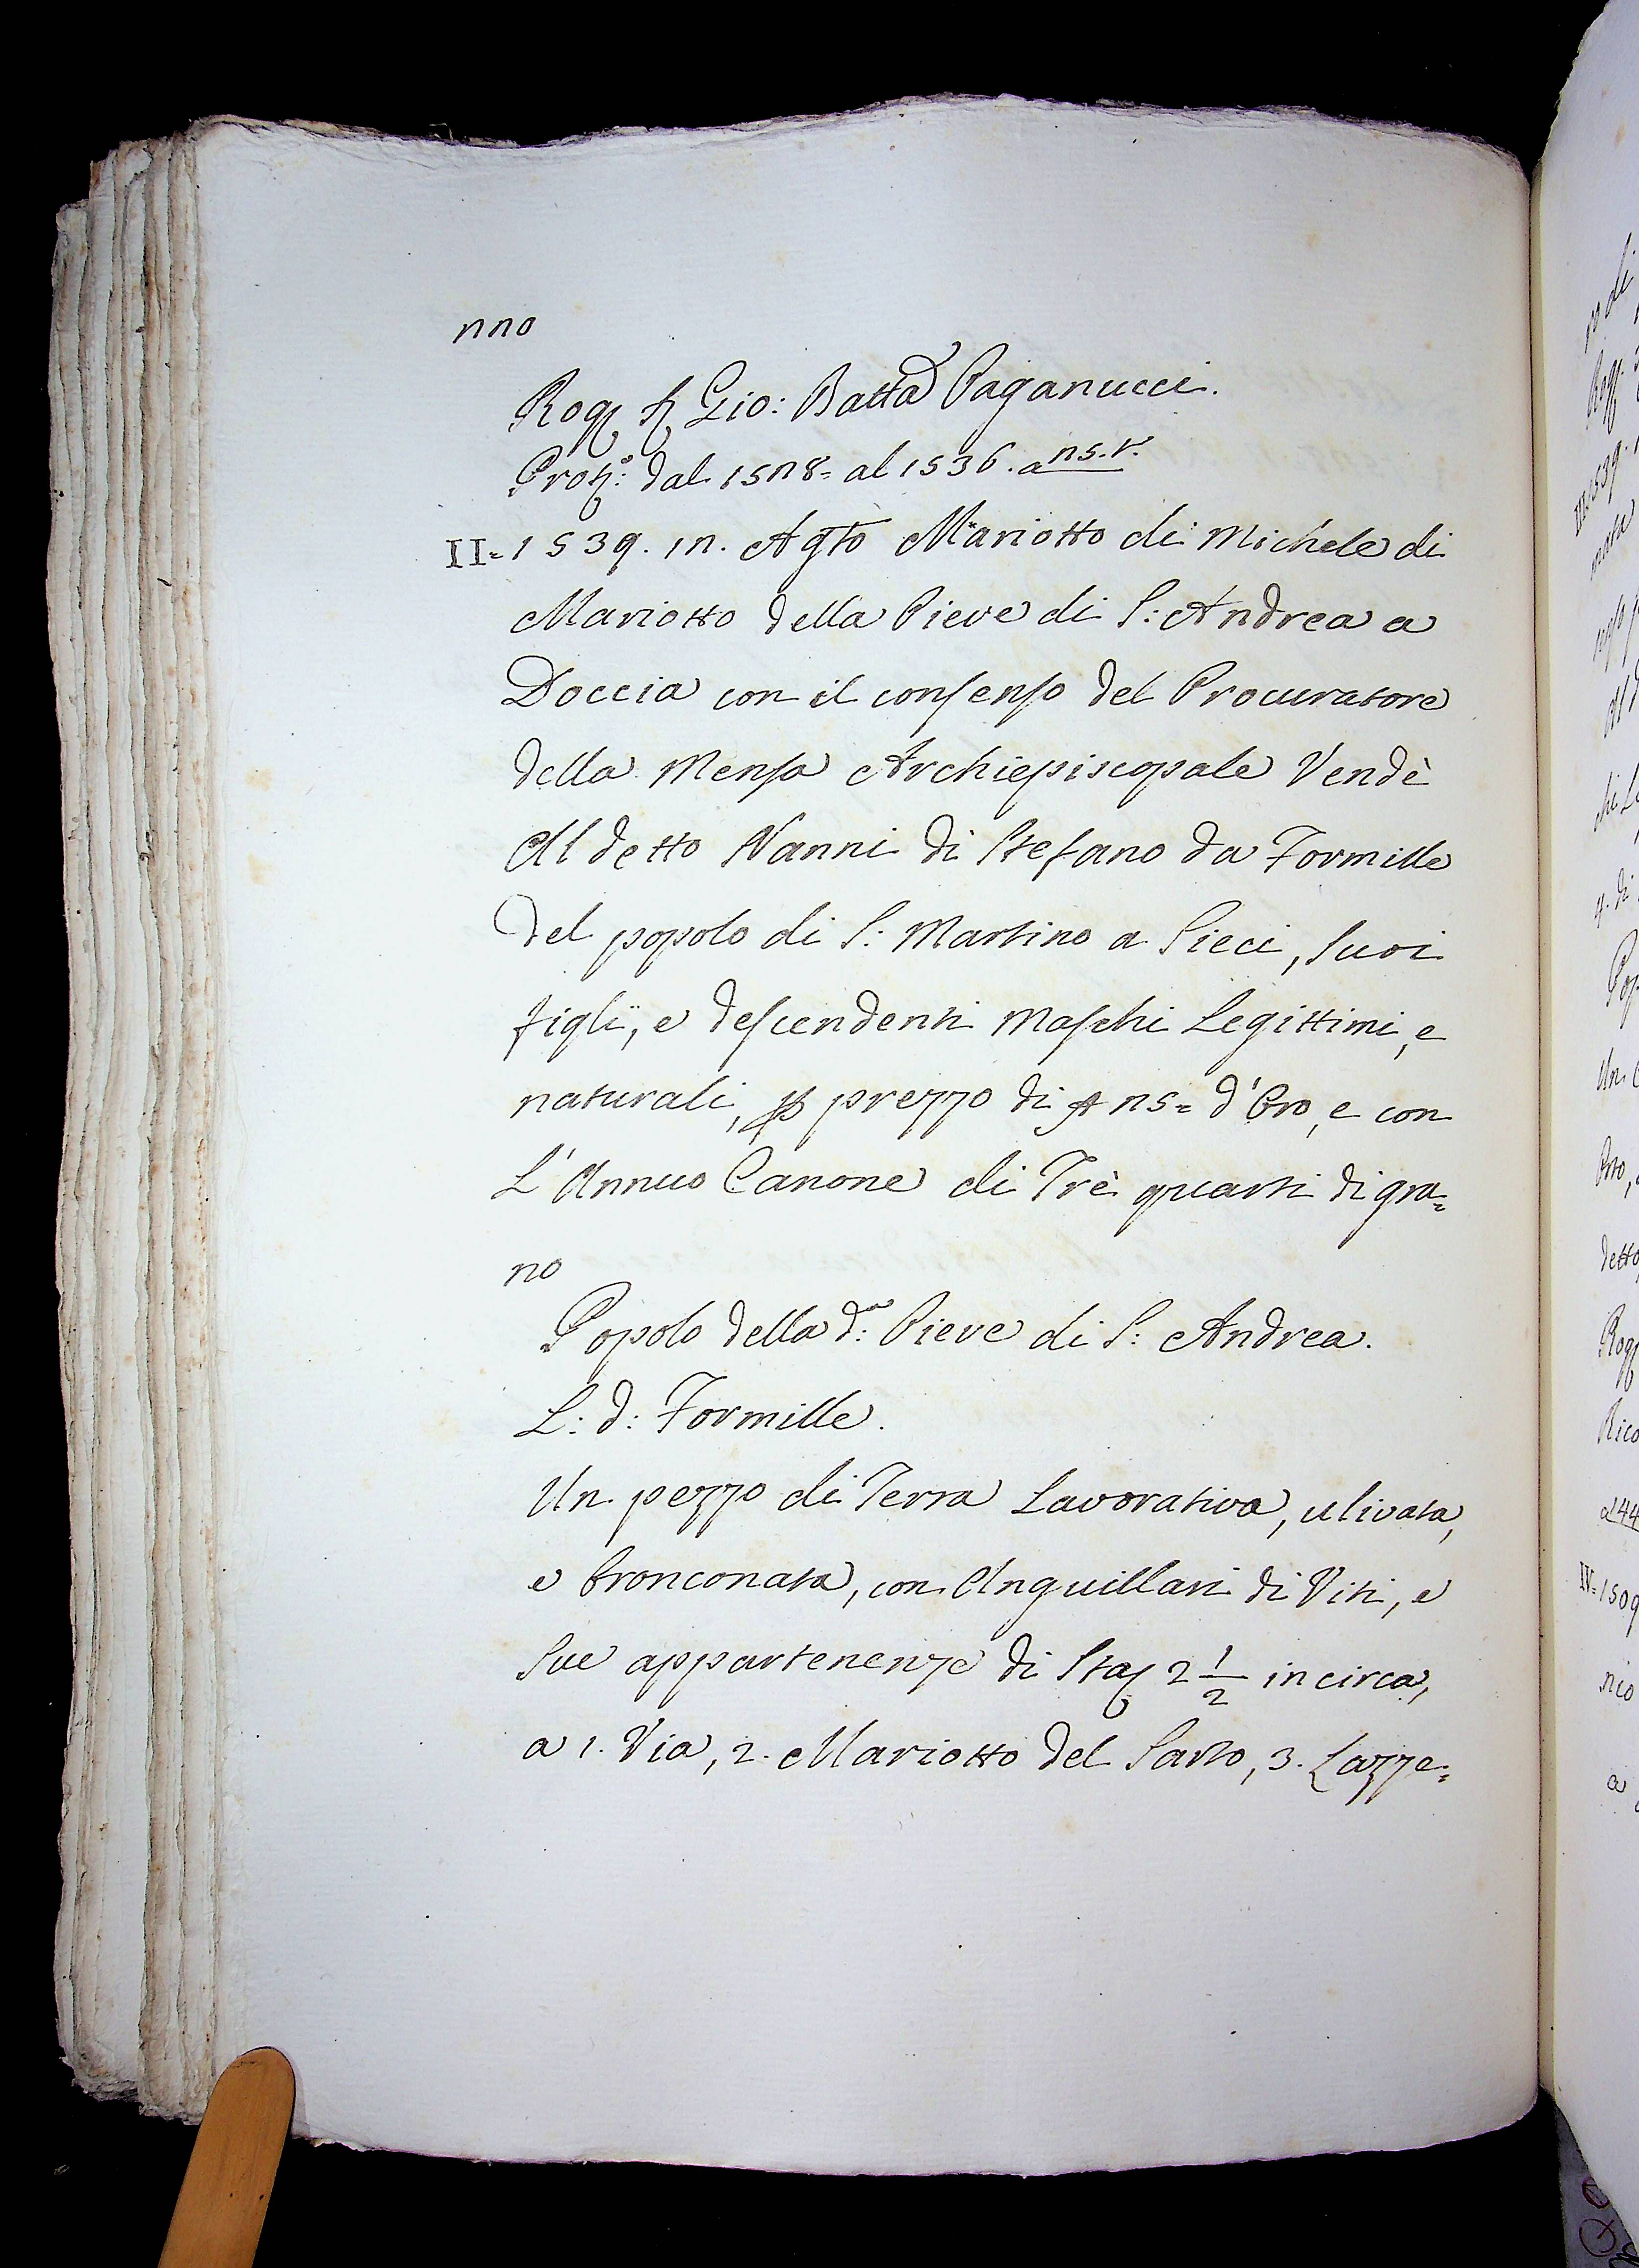 220
Rog. Sr. Gio: Batta Paganucci.
Proto: dal 1528= al 1536. a 25.v.
II=1539. 12. Agto Mariotto di Michele di
Mariotto della Pieve di S: Andrea a
Doccia con il consenso del Procuratore
della Mensa Archiepiscopale Vendè
Al detto Nanni di Stefano da Formille
del popolo di S: Martino a Sieci, Suoi
figlij, e descendenti Maschi Legittimi, e
naturali, p prezzo di 25= d'Oro, e con
L'Annuo Canone di Trè quarti di gra=
no
Popolo della d:a Pieve di S: Andrea.
L: d: Formille.
Un pezzo di Terra Lavorativa, ulivata,
e bronconata, con Anguillari di Viti, e
Sue appartenenze di Staj 2 1/2 in circa,
a 1. Via, 2. Mariotto del Sarto, 3. Lazze=